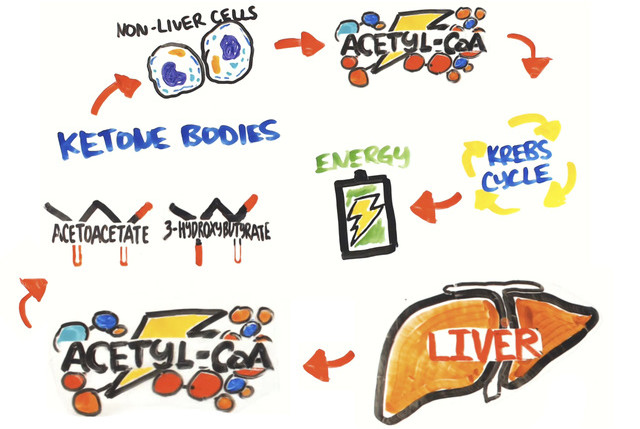 NON-LIVER CELLS
ACETYL-CoA
KETONE BODIES
ENERGY
KREBS
CYCLE
ACETOACETATE
3-HYDROXYBUTYRATE
ACETYL-CoA
LIVER